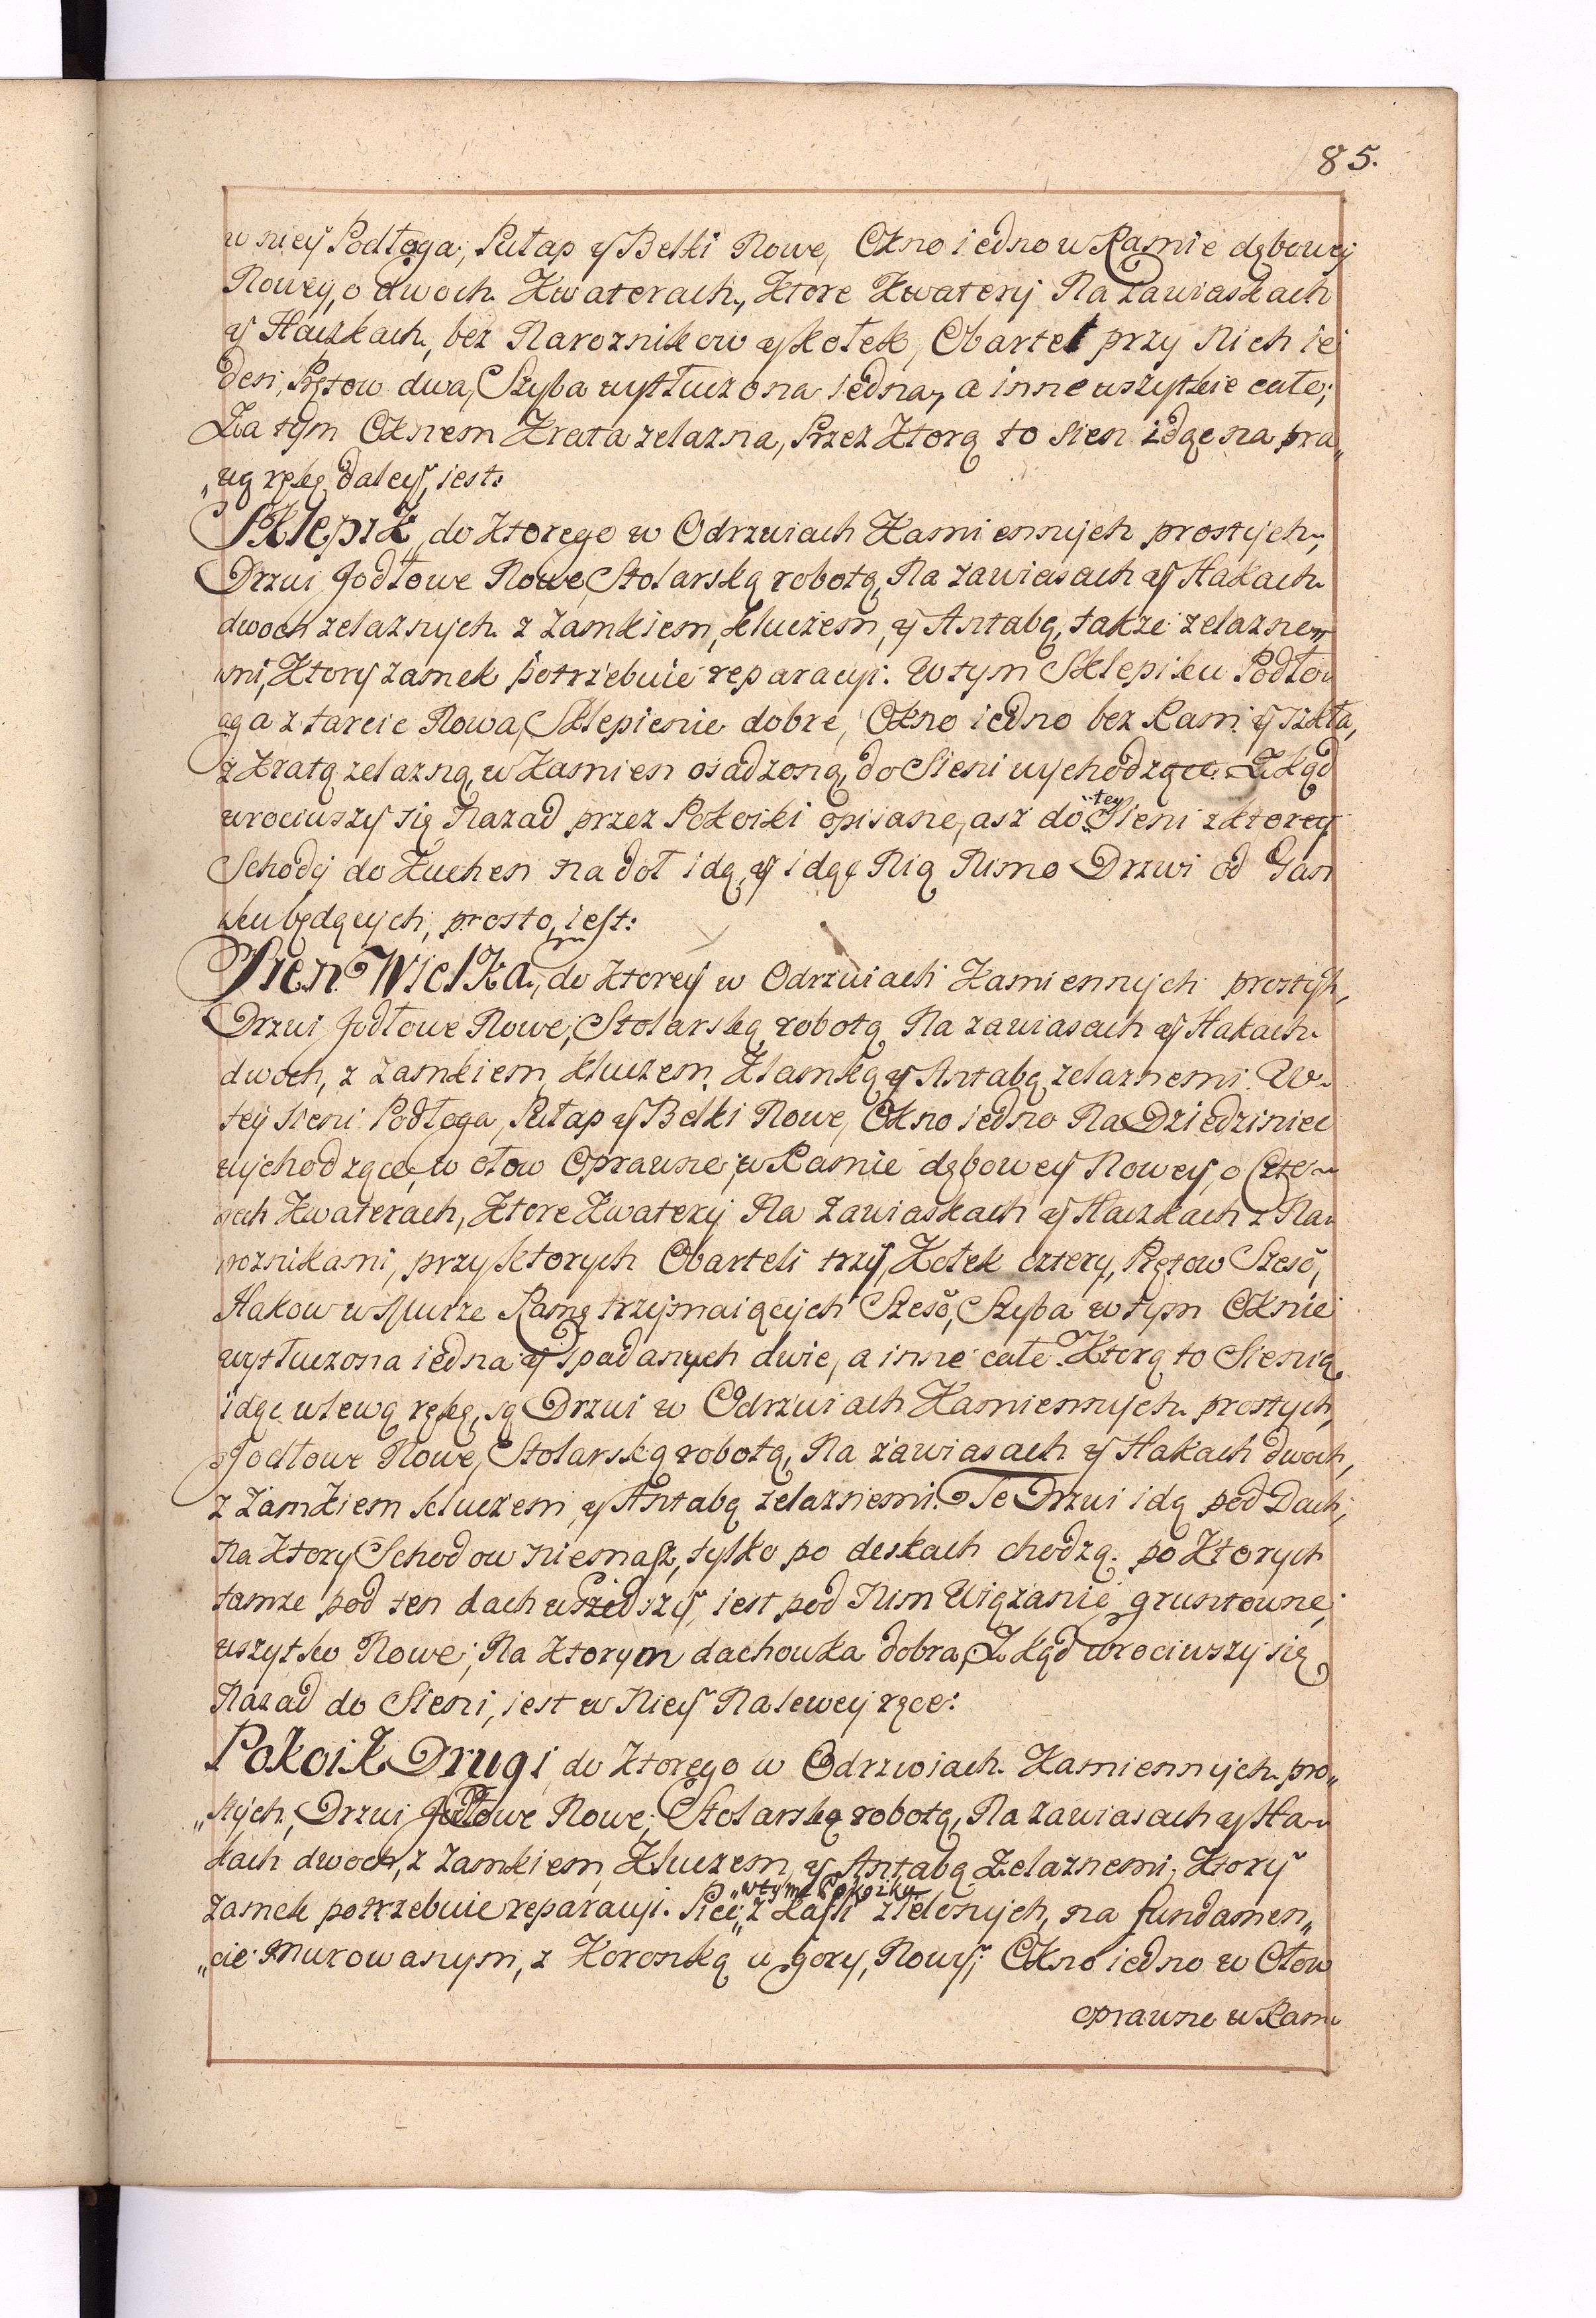 85.
w niey Podłoga, Pułap y Belki Nowe, Okno iedno w Ramie dębowey
Nowey, o dwoch Kwaterach, Ktore Kwatery Na zawiaskach
y Haczkach, bez Naroznikow y kołek, Obartel przy Nich ie
den, Prętow dwa, Szyba wytłuczona iedna, a inne wszytkie całe;
Za tym Oknem Krata zelazna, Przez Ktorą to sien idąc na pra„
„wą rękę daley, iest:
Sklepik, do Ktorego w Odrzwiach Kamiennych prostych,
Drzwi Jodłowe Nowe, Stolarską robotą, Na zawiasach y Hakach
dwoch zelaznych z Zamkiem, kluczem, y Antabą, także zelazne„
mi, Ktory zamek potrzebuie reparacyi. W tym Sklepiku Podło„
ga z tarcic Nowa, Sklepienie dobre, Okno iedno bez Ram y szkła,
z Kratą zelazną, w Kamien osadzoną, do Sieni wychodzące. Zkąd
wrociwszy się Nazad przez Pokoiki opisane, asz do Sieni z ktorey
„tey
Schody do Kuchen na doł idą, y idąc Nią Mimo Drzwi od Gan
ku będących, prosto, iest:
Sien Wielka, do Ktorey w Odrzwiach Kamiennych prostych,
Drzwi Jodłowe Nowe, Stolarską robotą Na zawiasach y Hakach
dwoch, z Zamkiem, kluczem, Klamką y Antabą zelaznemi. W
tey Sieni Podłoga, Pułap y Belki Nowe, Okno iedno Na Dziedziniec
wychodzące, w ołow Oprawne, w Ramie dębowey Nowey, o Czte„
rech Kwaterach, Ktore Kwatery Na Zawiaskach y Haczkach z Na„
roznikami, przy ktorych Obarteli trzy, Kołek cztery, Prętow Szesć,
Hakow w Murze Ramę trzymaiących Szesć, Szyba w tym Oknie
wytłuczona iedna y spadanych dwie, a inne całe. Ktorą to Sienią
idąc w lewą rękę, są Drzwi w Odrzwiach Kamiennych prostych,
Jodłowe Nowe, Stolarską robotą, Na zawiasach y Hakach dwoch,
z Zamkiem kluczem, y Antabą zelaznemi. Te Drzwi idą pod Dach,
Na Ktory Schodow niemasz, tylko po deskach chodzą. po Ktorych
tamze pod ten dach wszedszy, iest pod Nim Wiązanie gruntowne,
wszytko Nowe; Na Ktorym dachowka dobra, Zkąd wrociwszy się
Nazad do Sieni, iest w Niey Na lewey ręce:
Pokoik Drugi, do Ktorego w Odrzwiach Kamiennych pro„
„stych, Drzwi Jodłowe Nowe, Stolarską robotą, Na zawiasach y Ha„
kach dwoch, z Zamkiem, Kluczem, y Antabą Zelaznemi, Ktory
zamek potrzebuie reparacyi. Piec, z Kafli zielonych, na fundamen„
„w tym Pokoiku
„cie Murowanym, z Koronką u gory, Nowy; Okno iedno w Ołow
oprawne w Ram